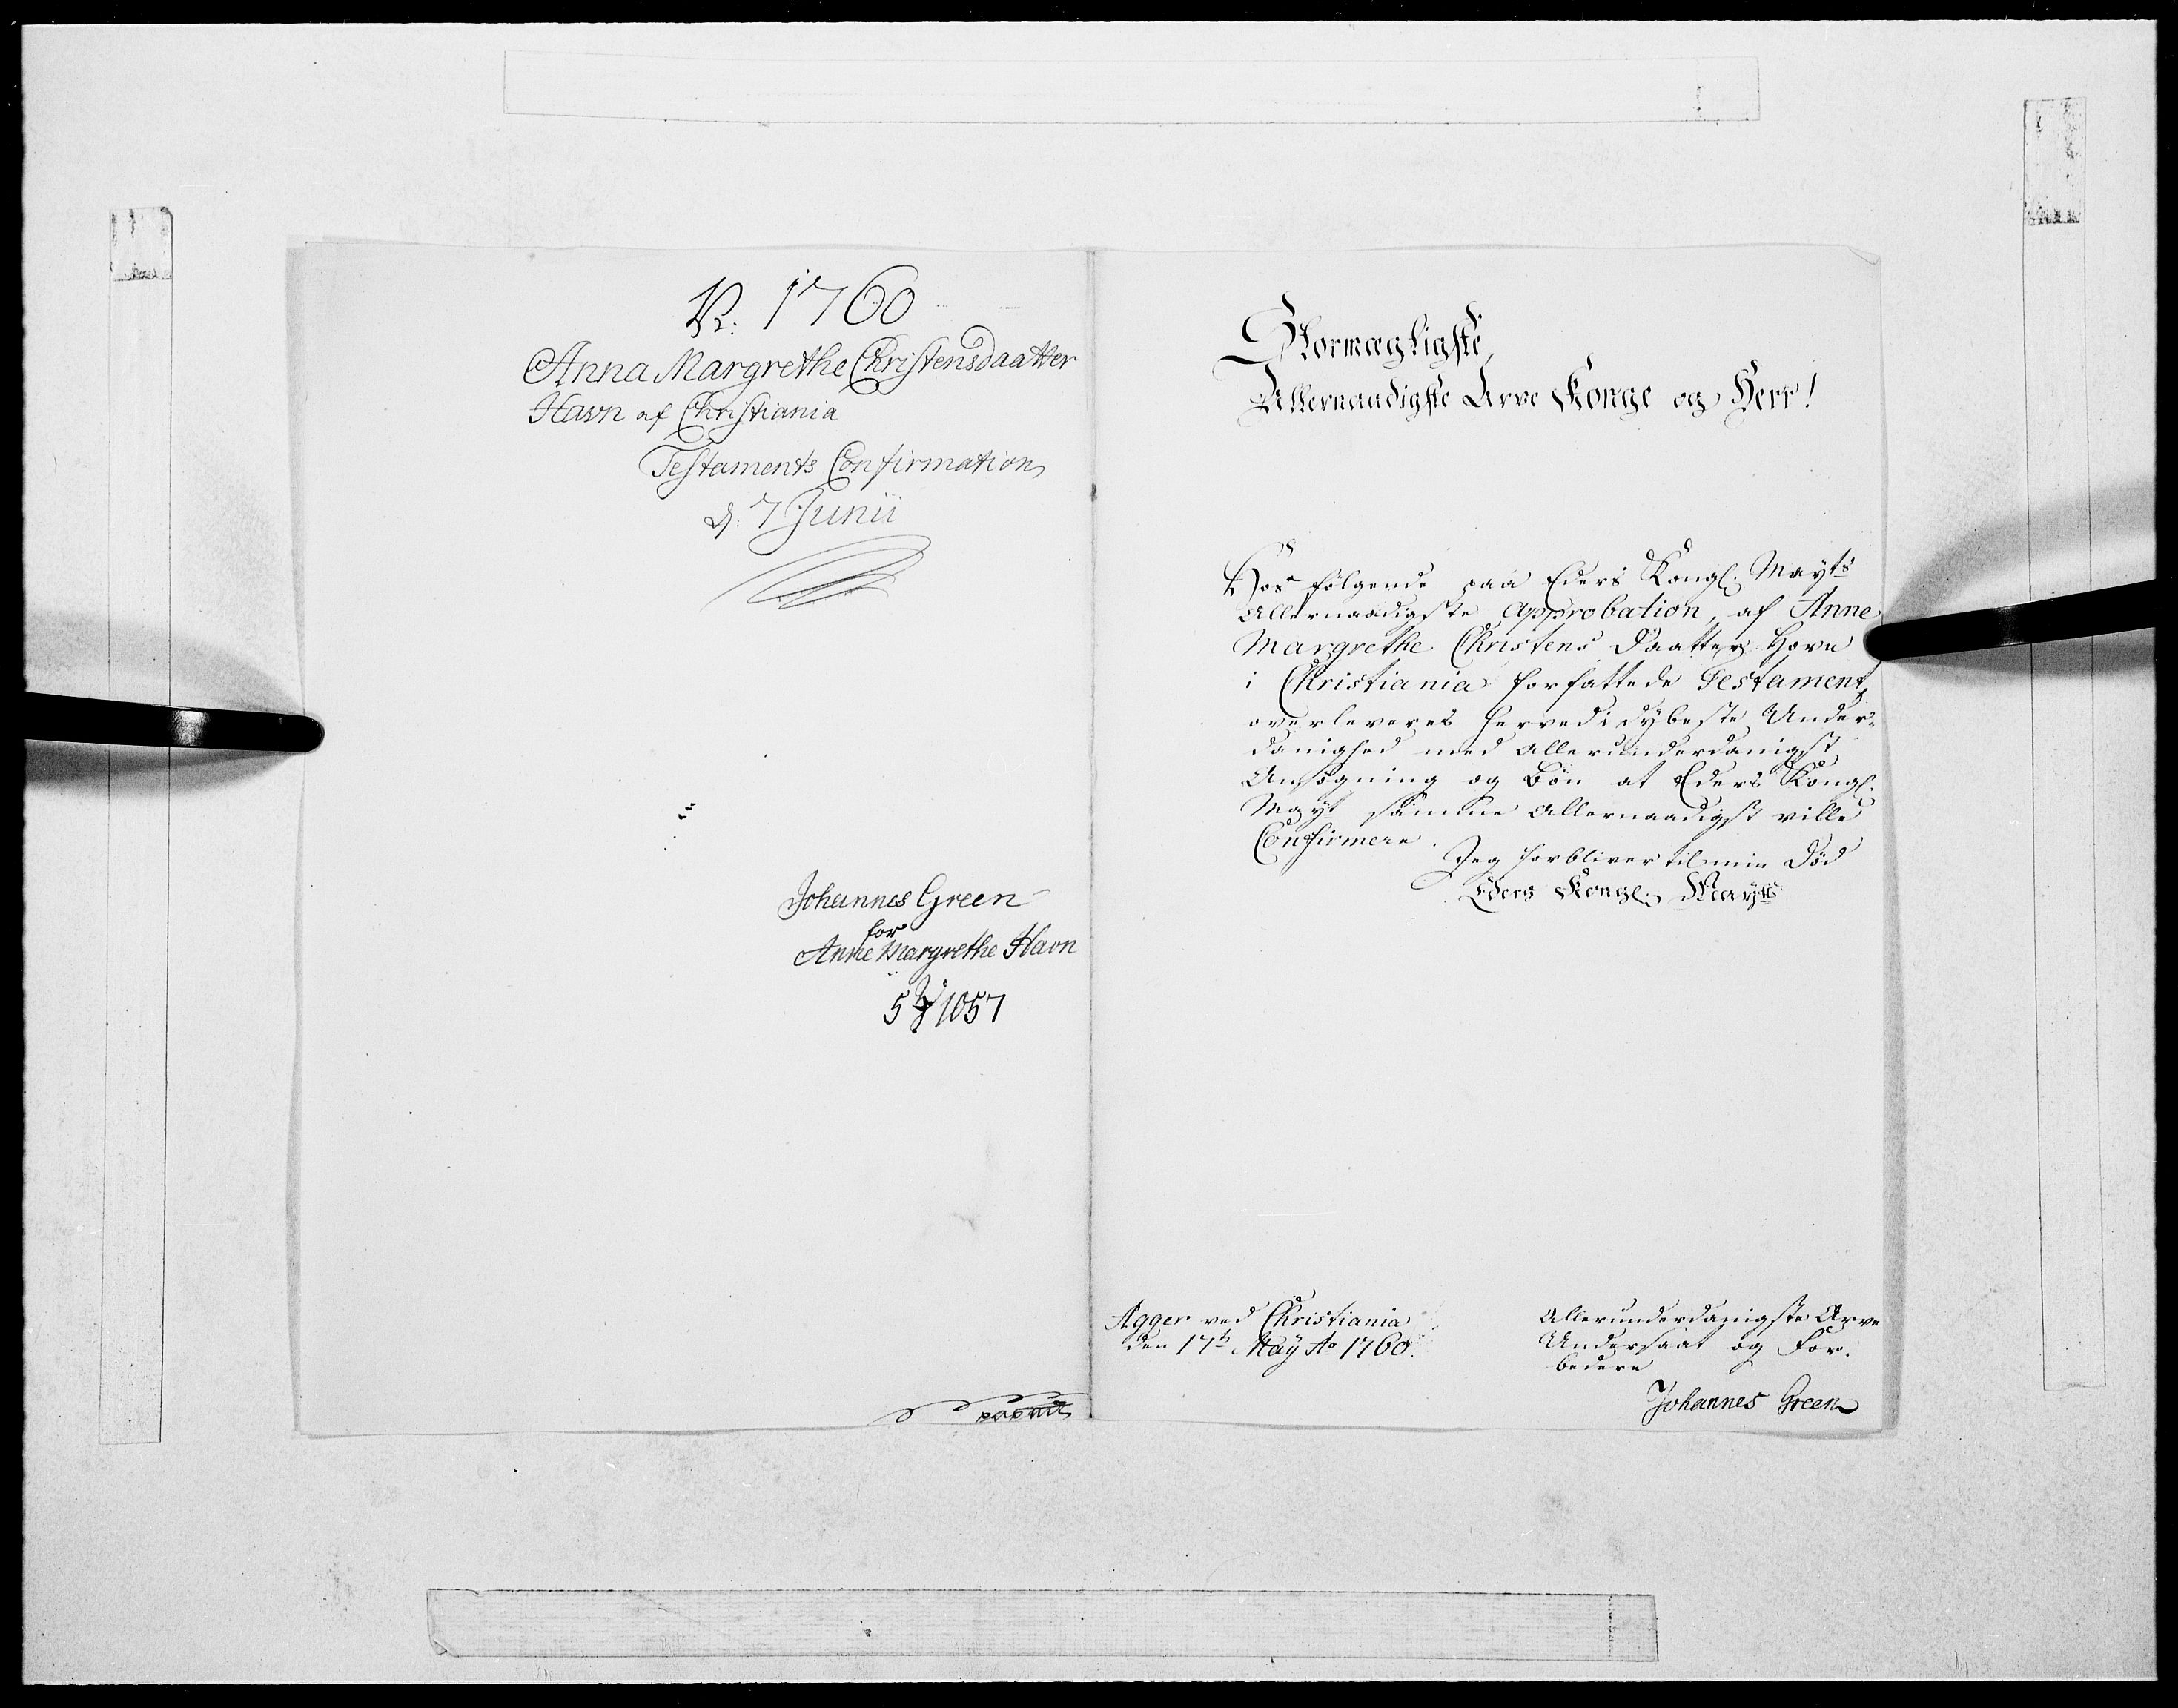 1760
Anna Margrethe Christensdaatter
Havn af Christiania
Testaments Confirmation
d: 7 Junii
Johannes Green
for
Anne Margrethe Havn
1057
Stormægtigste,
Allernaadigste Arve Konge og Herr!
Hos følgende paa Eders Kongl. Mayts
Allernaadigste Approbation, af Anne
Margrethe Christens Daatter Havn
i Christiania forfattede Testament,
overleveres herved i dybeste Under-
danighed med allerunderdanigst
Ansøgning og Bøn at Eders Kongl.
Mayt samme allernaadigst ville
Confirmere.
Jeg forbliver til min Død
Eders Kongl. Mayts
Agger ved Christiania
den 17de May Ao 1760.
Allerunderdanigste Arve
Undersaat og For-
bedere
Johannes Green